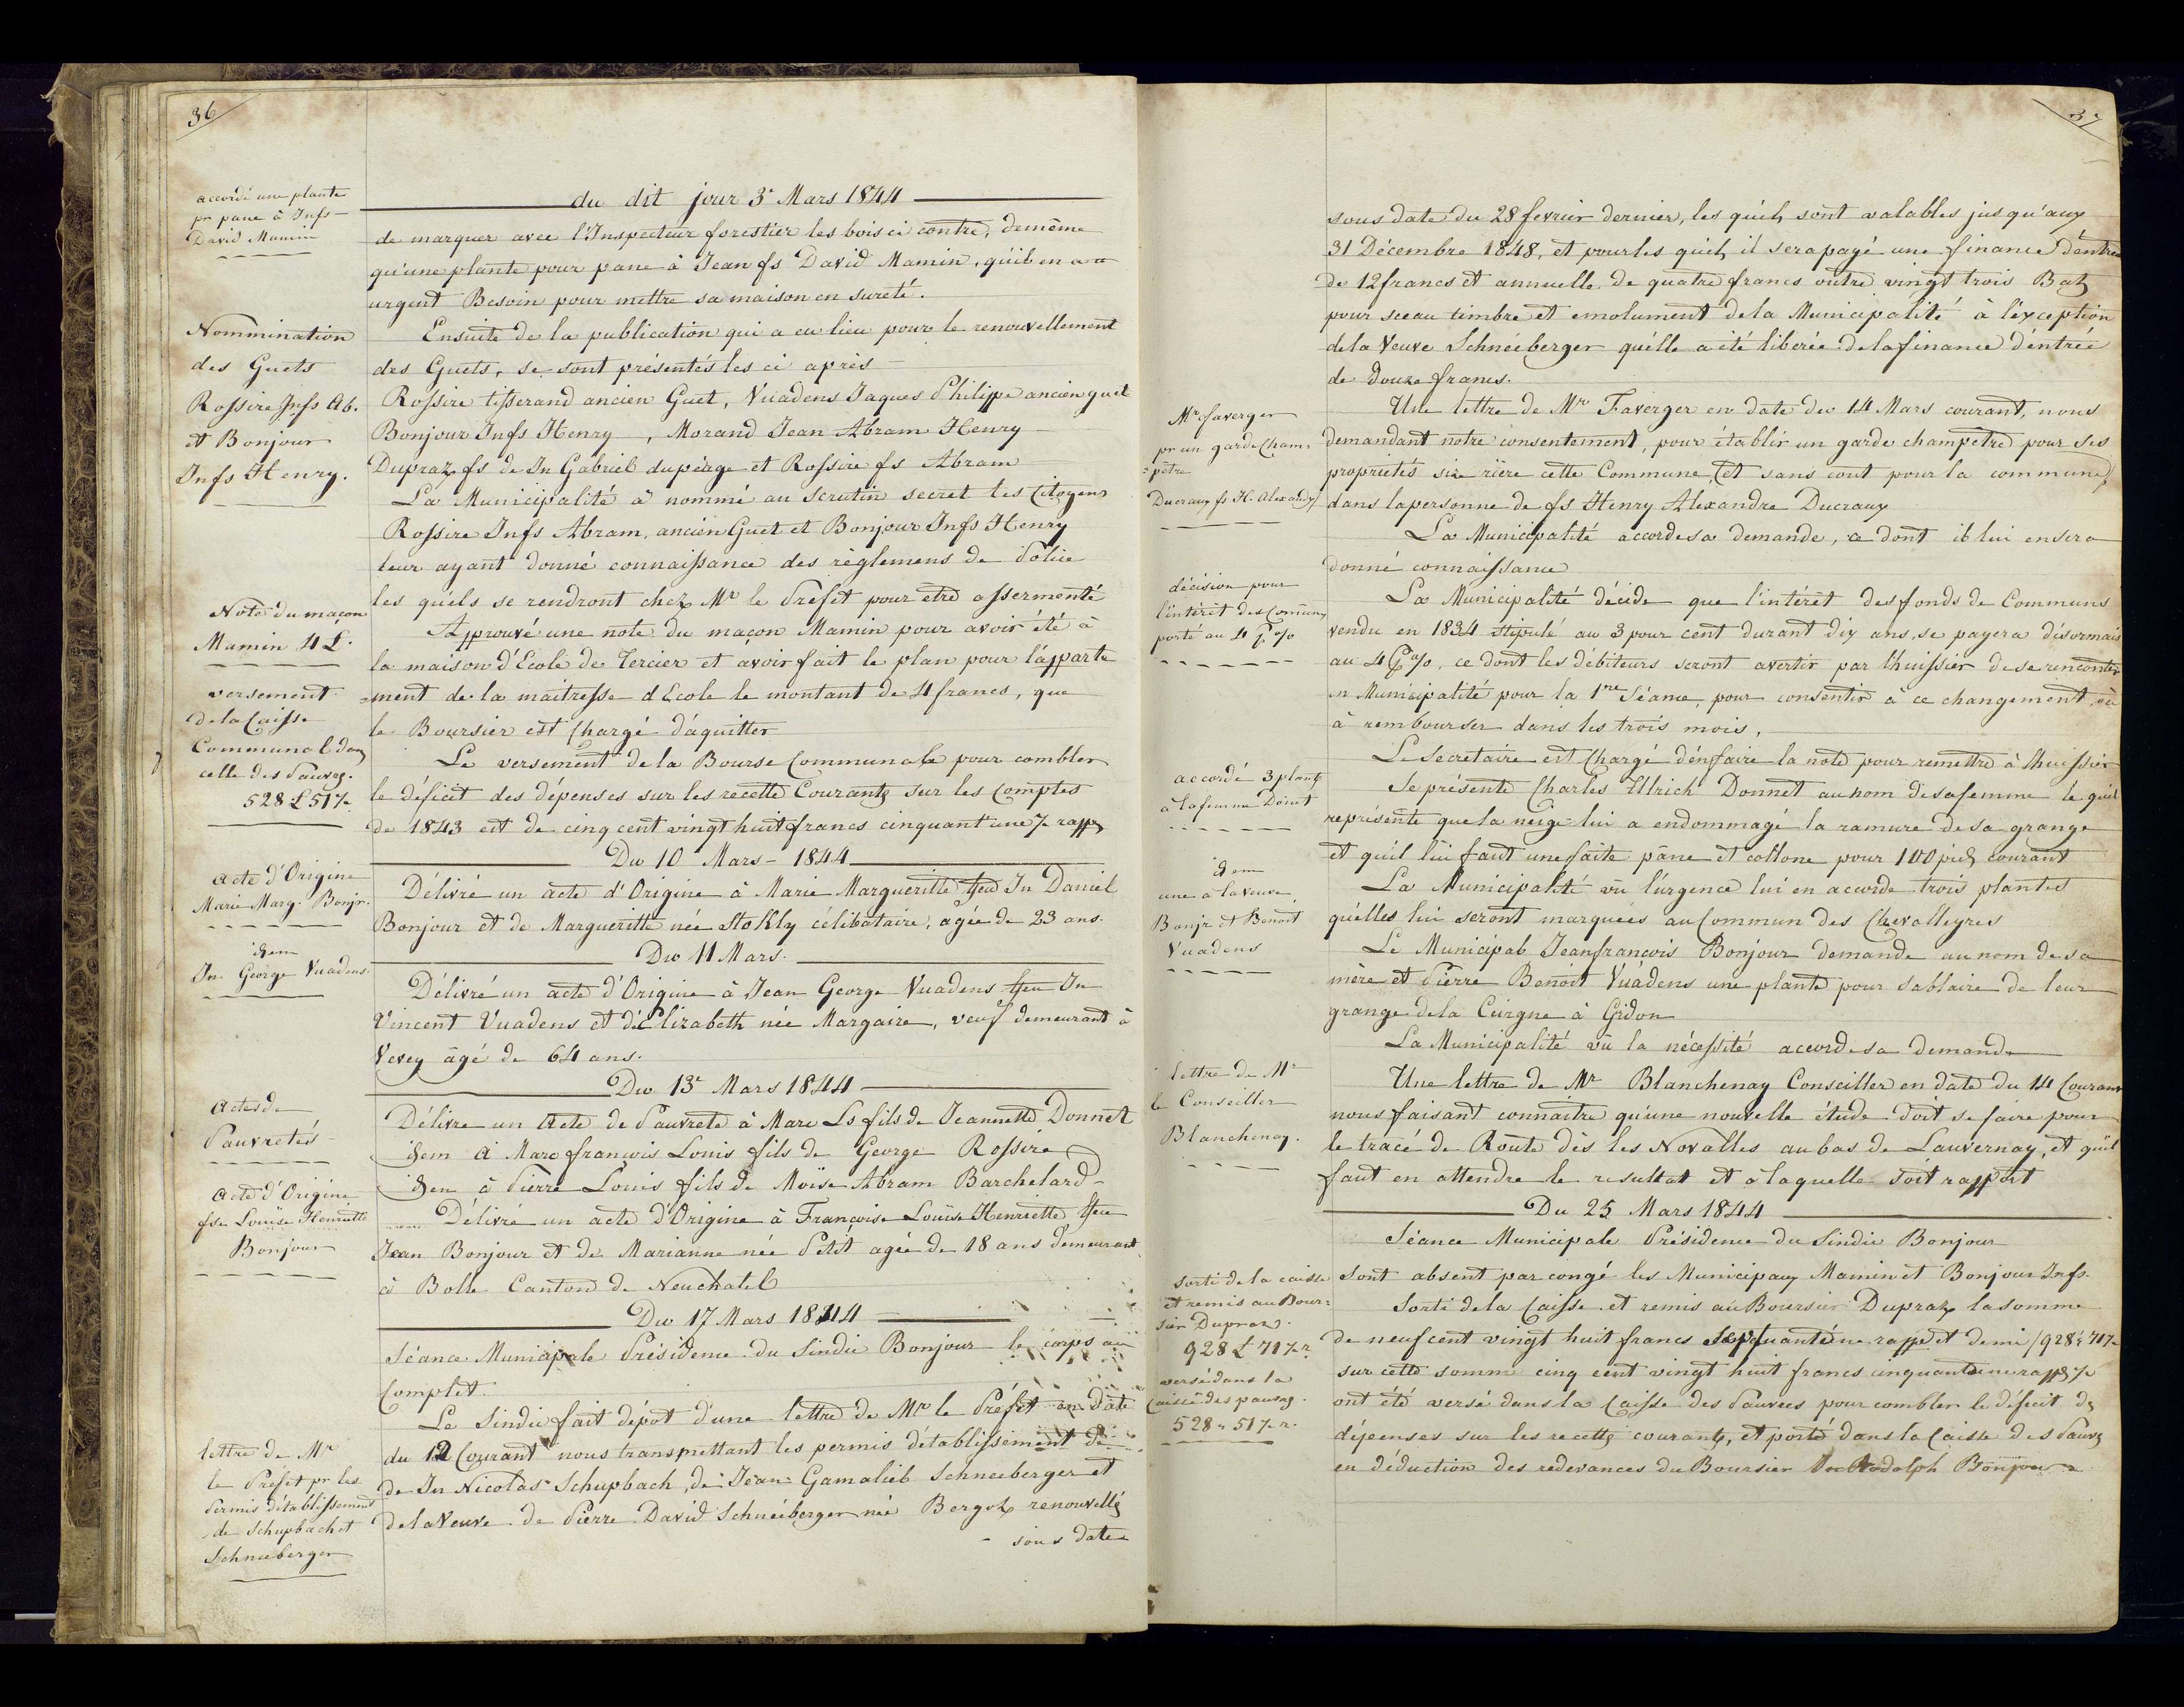 36
accordé une plante
pr pane à Jnfs
David Mamin
du dit jour 3e Mars 1844
de marquer avec l'Inspecteur forestier les bois ci contre, demême
qu'une plante pour pane à Jean fs David Mamin, qu'il en a
urgent Besoin pour mettre sa maison en sureté.
Nommination
des Guets
Rossire Jnfs Ab.
et Bonjour
Jnfs Henry.
Ensuite de la publication qui a eu lieu pour le renouvellement
des Guets, se sont présentés les ci après
Rossire tisserand ancien Guet, Vuadens Jaques Philippe ancien guet
Bonjour Jnfs Henry, Morand Jean Abram Henry
Dupraz fs de Jn Gabriel du péage et Rossire fs Abram
La Municipalité à nommé au Scrutin secret les Citoyens
Rossire Jnfs Abram, ancien Guet et Bonjour Jnfs Henry
leur ayant donné connaissance des règlemens de Police
les quéls se rendront chez Mr le Préfet pour etre assermenté
Note du maçon
Mamin 4 L.
Approuvé une note du maçon Mamin pour avoir été à
la maison d'Ecole de Tercier et avoir fait le plan pour l'apparte
=ment de la maitresse d'Ecole le montant de 4 francs, que
le Boursier est Chargé d'aquitter
versement
de la Caisse
Communale dans
celle des Pauvres.
528 L 51 ½
Le versement de la Bourse Communale pour combler
le déficit des dépenses sur les recette Courants sur les Comptes
de 1843 est de cinq cent vingt huit francs cinquant'une ½ rapps
Du 10 Mars 1844
acte d'Origine
Marie Marg. Bonjr.
Délivré un acte d'Origine à Marie Margueritte feu Jn Daniel
Bonjour et de Margueritte née Stokly célibataire, agée de 23 ans.
Du 11 Mars.
idem
Jn George Vuadens.
Délivré un acte d'Origine à Jean George Vuadens feu Jn
Vincent Vuadens et d'Elizabeth née Margaire, veuf demeurant à
Vevey âgé de 64 ans.
Du 13e Mars 1844
Actes de
Pauvretés
Délivre un Acte de Pauvreté à Marc Ls fils de Jeannette Donnet
idem à Marc francois Louis fils de George Rossire
idem à Pierre Louis fils de Moïse Abram Barchelard
acte d'Origine
fse Louise Henriette
Bonjour
Délivré un acte d'Origine à Françoise Louise Henriette feu
Jean Bonjour et de Marianne née Petit agée de 18 ans demeurant
à Bolle Canton de Neuchatel
Du 17 Mars 1844
Séance Municipale Présidence du Sindic Bonjour le corps au
Complet.
lettre de Mr
le Préfet pr les
Permis d'établissement
de Schupbach et
Schneeberger
Le Sindic fait dépot d'une lettre de Mr le Préfet en date
du 12 Courant nous transmettant les permis d'établissement de
de Jn Nicolas Schupbach, de Jean Gamaliel Schneeberger et
de la Veuve de Pierre David Schneéberger née Bergoz renouvellés
sous date
37
sous date du 28 fevrier dernier, les quéls sont valables jusqu'aux
31 Décembre 1848, et pour les quéls il sera payé une finance d'éntrée
de 12 francs et annuelle de quatre francs outre vingt trois Batz
pour sceau timbre et emolument de la Municipalité à l'exception
de la Veuve Schneéberger qu'élle a été liberée de la finance d'éntrée
de Douze francs.
Mr Faverger
pr un garde Cham=
=pêtre
Ducraux fs H. Alexandre
Une lettre de Mr Faverger en date du 14 Mars courant, nous
demandant notre consentement, pour établir un garde champêtre pour ses
proprietés size rière cette Commune, (et sans cout pour la commune)
dans la personne de fs Henry Alexandre Ducraux
La Municipalité accorde sa demande, a dont il lui en sera
donné connaissance
décision pour
l'intérêt des Comuns
porté au 4 P %
La Municipalité décide que l'intérêt des fonds de Communs
vendu en 1834 stipulé au 3 pour cent durant dix ans, se payera désormais
au 4 P %, ce dont les débiteurs seront avertir par l'huissier de se rencontrer
en Municipalité pour la 1re Séance, pour consentir à ce changement, où
à rembourser dans les trois mois.
Le Secretaire est Chargé d'én faire la note pour remettre à l'huissier
accordé 3 plants
à la femme Donnet
Se présente Charles Ulrich Donnet au nom de sa femme le quél
représente que la neige lui a endommagé la ramure de sa grange
et qu'il lui faut une faite pâne et collone pour 100 pieds courant
La Municipalité vû l'urgence lui en accorde trois plantes
qu'elles lui seront marquées au Commun des Chevalleyres
idem
une à la veuve
Bonjr et Benoit
Vuadens
Le Municipal Jeanfrançois Bonjour demande au nom de sa
mère et Pierre Benoit Vuadens une plante pour Sablaire de leur
grange de la Cuirgne à Gidon
La Municipalité vû la nécessité accorde sa demande
lettre de Mr
le Conseiller
Blanchenay.
Une lettre de Mr Blanchenay Conseiller en date du 14 Courant
nous faisant connaitre qu'une nouvelle étude doit se faire pour
le tracé de Route dès les Novalles au bas de Lauvernay, et qu'il
faut en attendre le resultat et à laquelle soit rapport
Du 25 Mars 1844
Séance Municipale Présidence du Sindic Bonjour
sont absent par congé les Municipaux Mamin et Bonjour Jnfs.
Sorti de la caisse
et remis au Bour=
sier Dupraz.
928 L 71 ½ r.
versé dans la
Caisse des pauvres.
528 " 51 ½ r.
Sorti de la Caisse et remis au Boursier Dupraz la somme
de neuf cent vingt huit francs Septante une rappe et demi (928 " 71 ½
sur cette somme cinq cent vingt huit francs cinquante une rapps ½
ont été versé dans la Caisse des Pauvres pour combler le déficit des
dépenses sur les recettes courants, et porté dans la Caisse des Pauvres
en déduction des redevances du Boursier Rodolph Bonjour